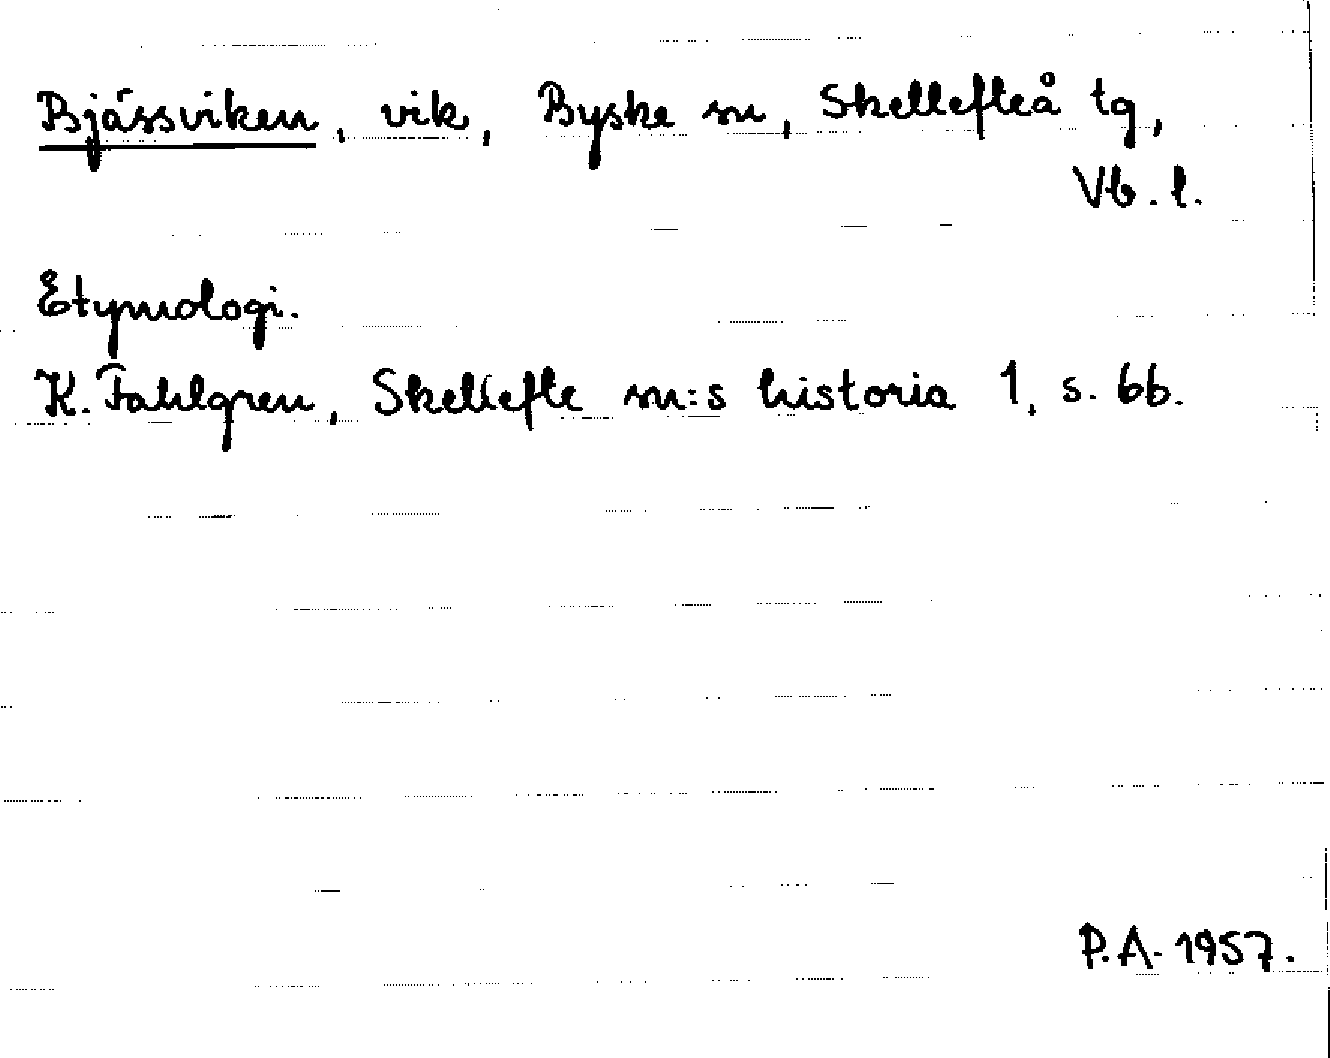 Bjässviken, vik, Byske sn, Skellefteå tg,
Vb. l.
Etymologi.
K. Fahlgren, Skellefte sn:s historia 1, s. 66.
P.A. 1957.